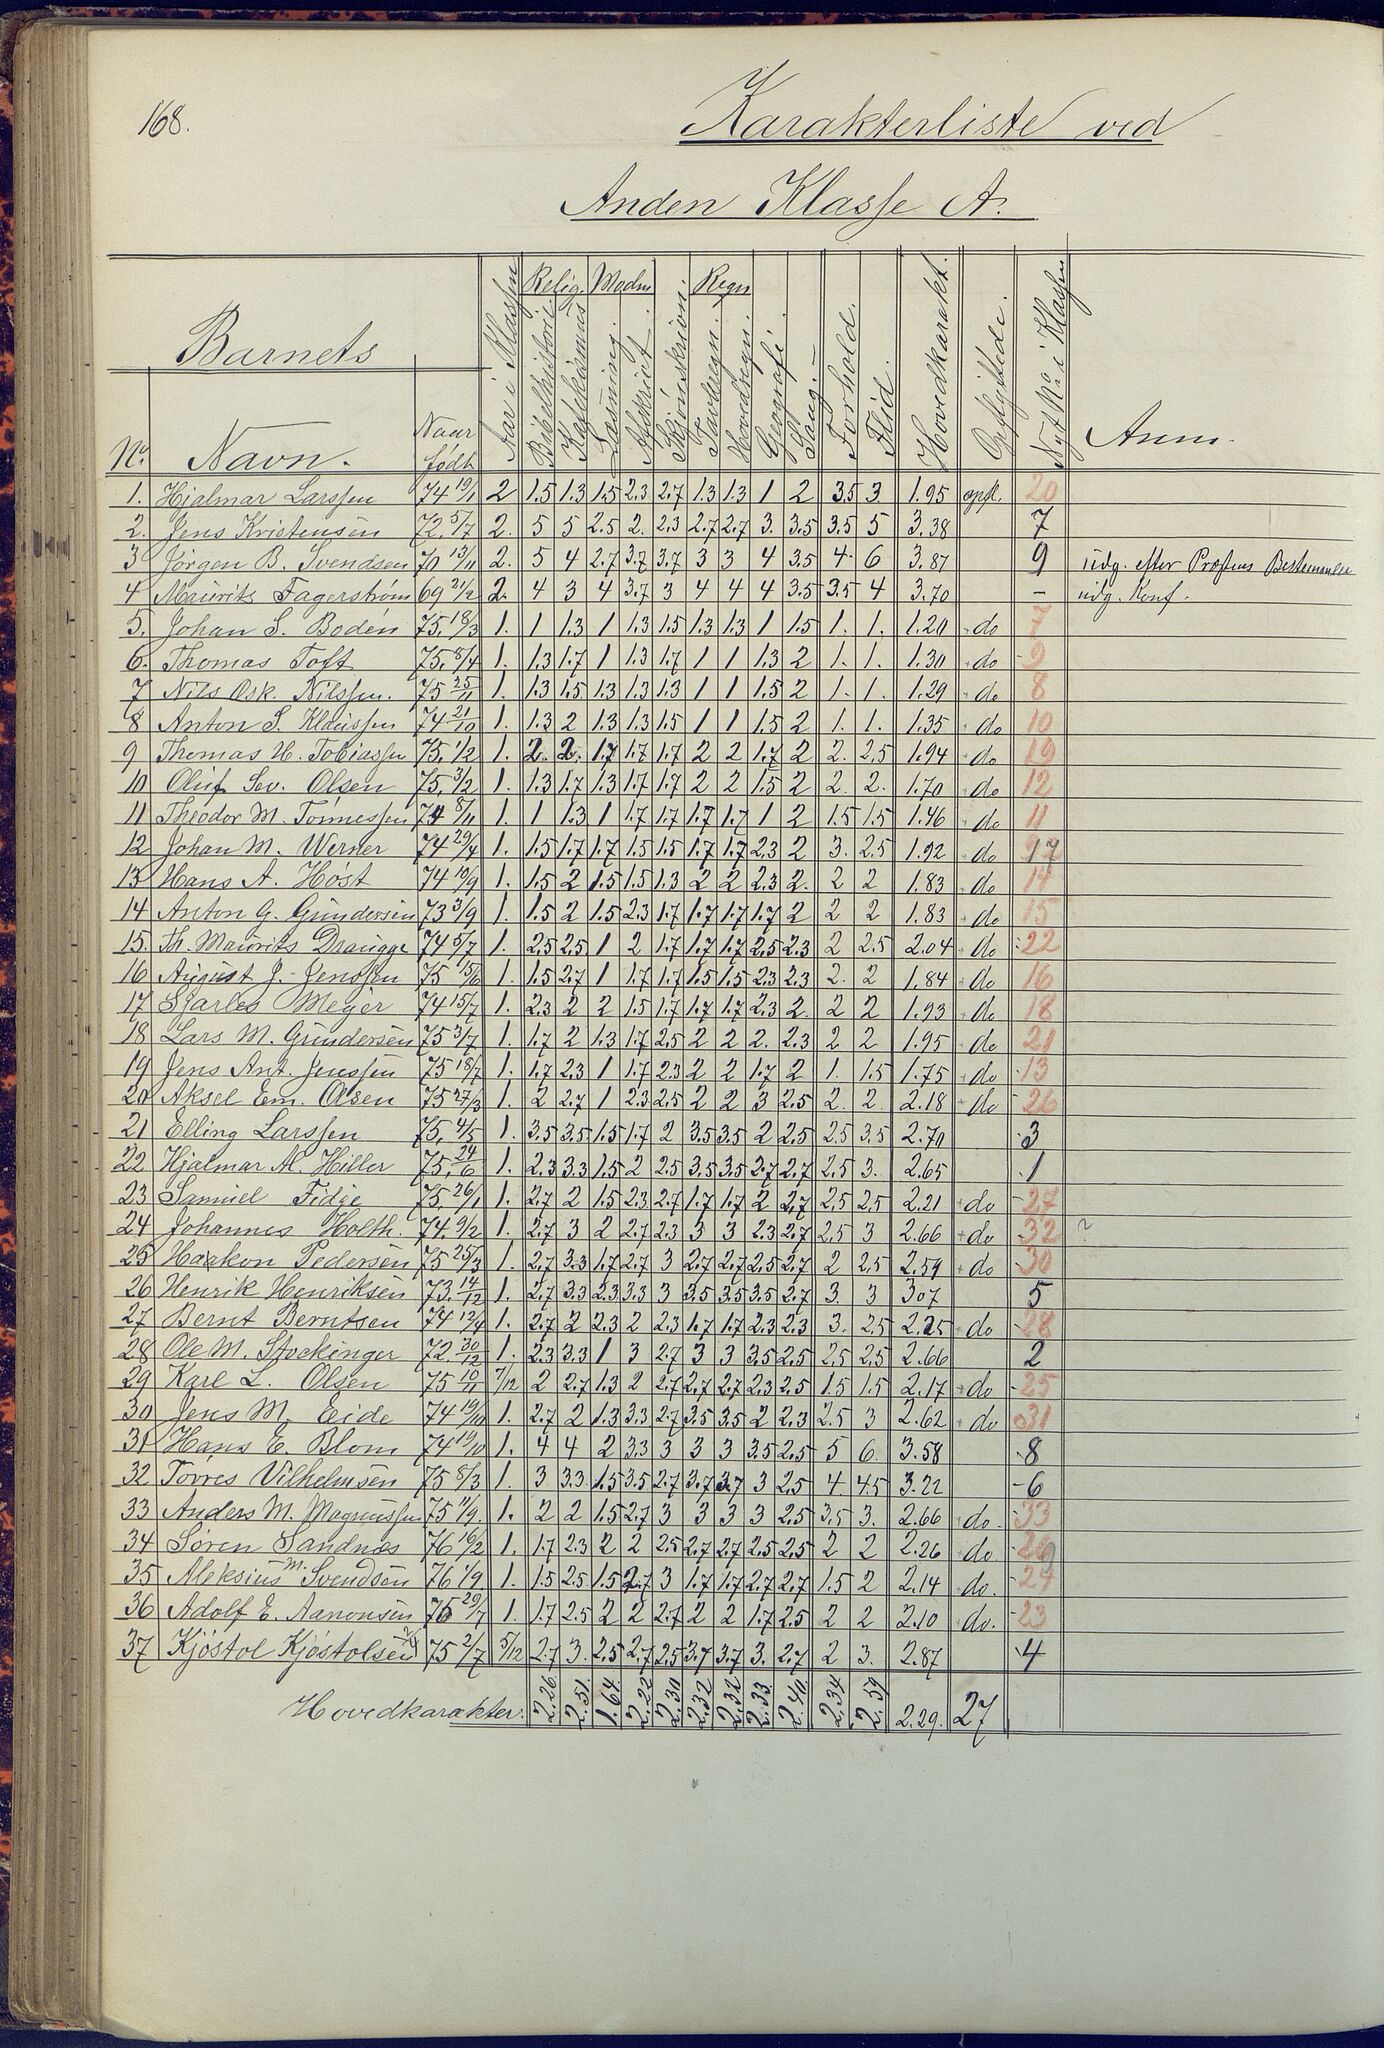 168.
Karakterliste ved
Anden Klasse A.
Barnets
No. Navn. Naar født Aar i Klassen Relig. Bibelhistorie Katekismus Modm Læsning. Afskrivt. Skjönskrivn. Regn Tavleregn. Hovedregn. Geografi. Sang. Forhold. Flid. Hovedkarakt. Opflyttede. Nyt No. i Klassen Anm.
1. Hjalmar Larssen 74 19/1 2 1.5 1.3 1.5 2.3 2.7 1.3 1.3 1 2 3.5 3. 1.95 opf. 20
2. Jens Kristensen 72. 5/7 2. 5 5 2.5 2. 2.3 2.7 2.7 3. 3.5 3.5 5 3.38 7
3 Jørgen B. Svendsen 70 13/11 2. 5 4 2.7 3.7 3.7 3 3 4 3.5 4. 6 3.87 9 udg. efter Prestens Bestemmelse
4 Maurits Fagerstrøm 69 21/2 2. 4 3 4 3.7 3 4 4 4 3.5 3.5 4 3.70 – udg. Konf.
5. Johan S. Boden 75. 18/3 1. 1 1.3 1 1.3 1.5 1.3 1.3 1 1.5 1. 1. 1.20 do 7
6. Thomas Toft 75. 8/4 1. 1.3 1.7 1 1.3 1.7 1 1 1.3 2 1. 1. 1.30 do 9
7 Nils Osk. Nilssen. 75 25/11 1. 1.3 1.5 1.3 1.3 1.3 1 1 1.5 2 1. 1. 1.29 do 8
8 Anton S. Klaussen 74 21/10 1. 1.3 2 1.3 1.3 1.5 1 1 1.5 2 1. 1. 1.35 do 10
9 Thomas H. Tobiassen 75. 1/2 1. 2. 2. 1.7 1.7 1.7 2 2 1.7 2 2. 2.5 1.94 do 19
10 Oluf Sev. Olsen 75. 3/2 1. 1.3 1.7 1.3 1.7 1.7 2 2 1.5 2 2. 2. 1.70 do 12
11 Theodor M. Tønnessen 74 8/11 1. 1 1.3 1 1.7 1.7 1.7 1.7 1 2 1.5 1.5 1.46 do 11
12 Johan M. Werner 74 29/4 1. 1.5 1.7 1.7 1.5 1.5 1.7 1.7 2.3 2 3. 2.5 1.92 do 17
13 Hans A. Höst 74 10/9 1. 1.5 2 1.5 1.5 1.3 2 2 2.3 2. 2 2 1.83 do 14
14 Anton G. Gundersen 73 3/9 1. 1.5 2 1.5 2.3 1.7 1.7 1.7 1.7 2 2 2 1.83 do 15
15. Th. Maurits Drougge 74 5/7 1. 2.5 2.5 1 2 1.7 1.7 1.7 2.5 2.3 2 2.5 2.04 do 22
16 August J. Jenssen 75 15/6 1. 1.5 2.7 1 1.7 1.7 1.5 1.5 2.3 2.3 2. 2 1.84 do 16
17 Sjarles Meyer 74 15/7 1. 2.3 2 2 1.5 1.7 1.7 1.7 2.3 2. 2 2 1.93 do 18
18 Lars M. Gundersen 75 3/7 1. 1.7 2 1.3 1.7 2.5 2 2 2. 2.3 2 2 1.95 do 21
19 Jens Ant. Jenssen 75 18/7 1. 1.7 2.3 1 1.7 2.3 2 2 1.7 2 1. 1.5 1.75 do 13
20 Aksel Em. Olsen 75 27/3 1. 2 2.7 1 2.3 2.5 2 2 3 2.5 2. 2. 2.18 do 26
21 Elling Larssen 75. 4/5 1. 3.5 3.5 1.5 1.7 2 3.5 3.5 2 2.5 2.5 3.5 2.70 3
22 Hjalmar M. Hiller 75. 24/6 1. 2.3 3.3 1.5 2 2.5 3.5 3.5 2.7 2.7 2.5 3. 2.65 1
23 Samuel Fidje 75. 26/1 1. 2.7 2 1.5 2.3 2.7 1.7 1.7 2 2.7 2.5 2.5 2.21 do 27
24 Johannes Holth. 74. 9/2 1. 2.7 3 2 2.7 2.3 3 3 2.3 2.7 2.5 3 2.66 do 32 ?
25 Haakon Pedersen 75 25/3 1. 2.7 3.3 1.7 2.7 3 2.7 2.7 2.5 2.7 2 2.5 2.59 do 30
26 Henrik Henriksen 73. 14/12 1. 2.7 3.3 2.3 3.3 3 3.5 3.5 3.5 2.7 3. 3 3.07 5
27 Bernt Berntsen 74 12/4 1. 2.7 2 2.3 2 2.3 1.7 1.7 2.3 2.3 3. 2.5 2.25 do 28
28 Ole M. Stockinger 72. 30/12 1. 2.3 3.3 1 3 2.7 3 3 3.5 2.5 2.5 2.5 2.66 2
29 Karl L. Olsen 75 10/11 7/12 2 2.7 1.3 2 2.7 2.7 2.7 2.3 2.5 1.5 1.5 2.17 do 25
30 Jens M. Eide 74 19/10 1. 2.7 2 1.3 3.3 2.7 3.5 3.5 2 2.3 2.5 3 2.62 do 31
31 Hans E. Blom 74 19/10 1. 4 4 2 3.3 3 3 3 3.5 2.5 5 6. 3.58 8
32 Törres Vilhelmsen 75 8/3 1. 3 3.3 1.5 3.5 2.7 3.7 3.7 3 2.5 4. 4.5 3.22 6
33 Anders M. Magnussen 75 11/9. 1. 2 2 1.5 2.7 3 3 3 3 2.5 3.5 3. 2.66 do. 33
34 Sören Sandnæs 76 16/2 1. 1.7 2.3 2 2 2.5 2.7 2.7 2.5 2.5 2 2 2.26 do. 29
35 Aleksius M. Svendsen 76 1/9 1. 1.5 2.5 1.5 2.7 3 1.7 1.7 2.7 2.7 1.5 2 2.14 do. 24
36 Adolf E. Aanonsen 75 29/7 1. 1.7 2.5 2 2 2.7 2 2 1.7 2.5 2 2 2.10 do. 23
37 Kjöstol Kjöstolsen 75 2/7 5/12 2.7 3. 2.5 2.7 2.5 3.7 3.7 3. 2.7 2 3. 2.87 4
Hovedkarakter. 2.26. 2.51. 1.64. 2.22 2.30 2.32 2.32 2.33. 2.40. 2.34 2.59 2.29. 27